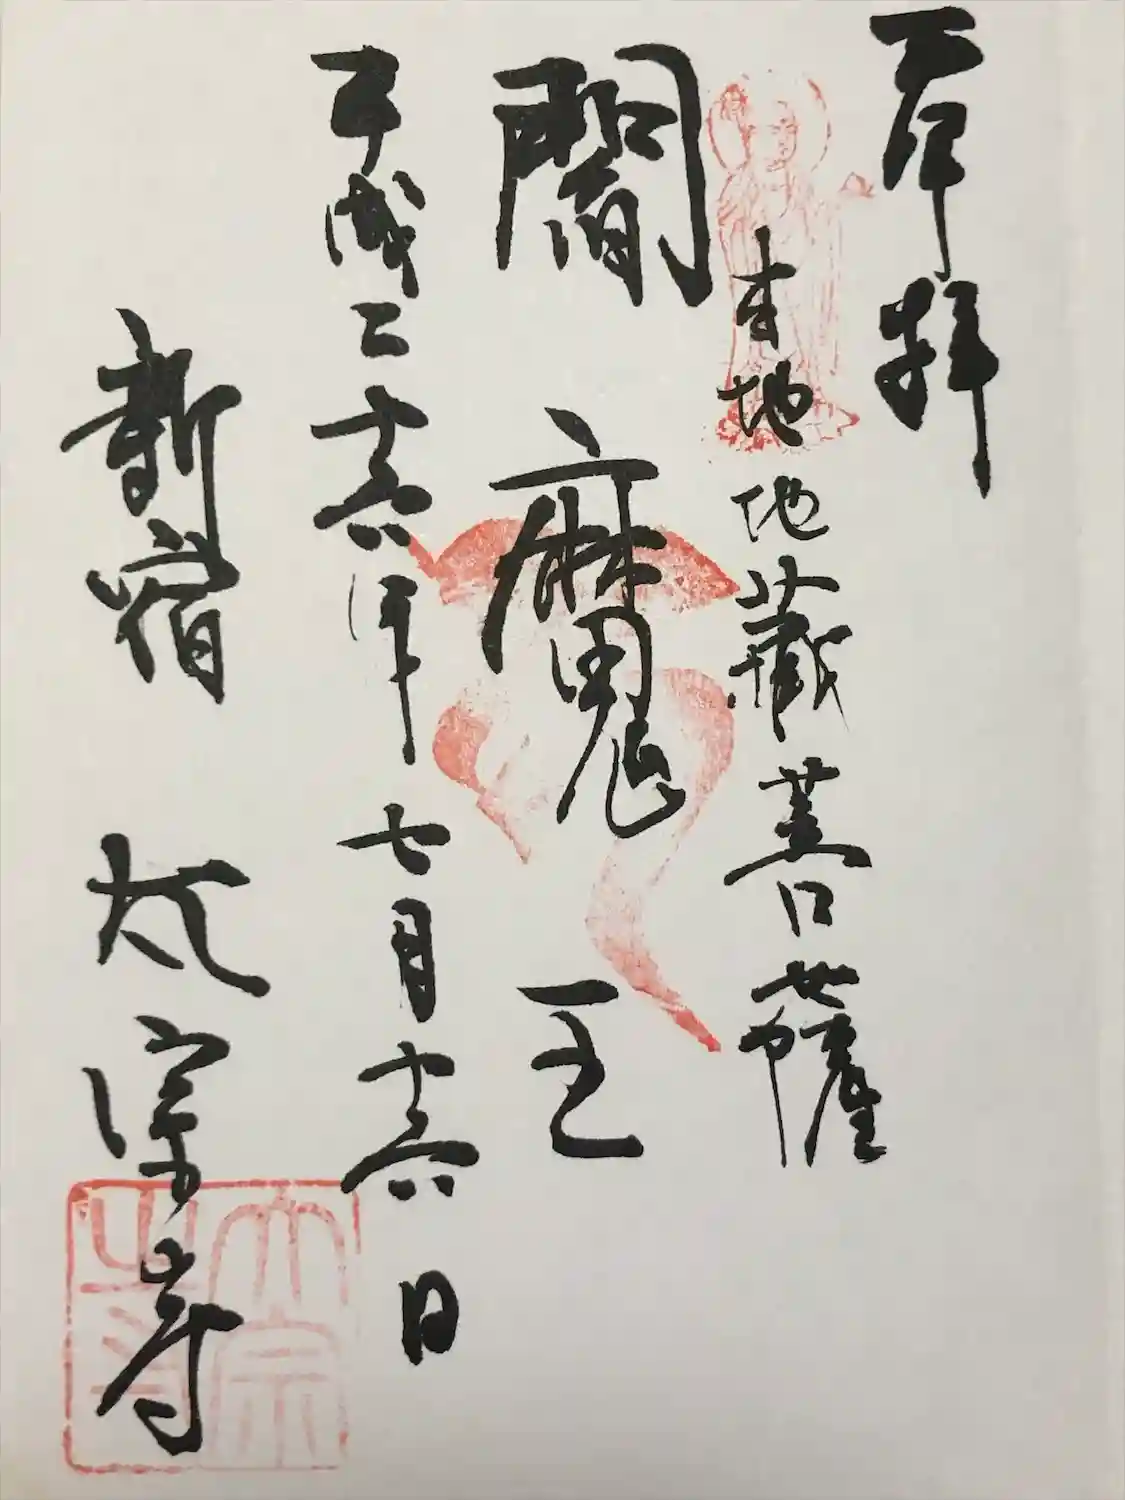 奉拝
本地地蔵菩薩
閻魔王
平成二十六年七月十六日
新宿 太宗寺
太宗之寺